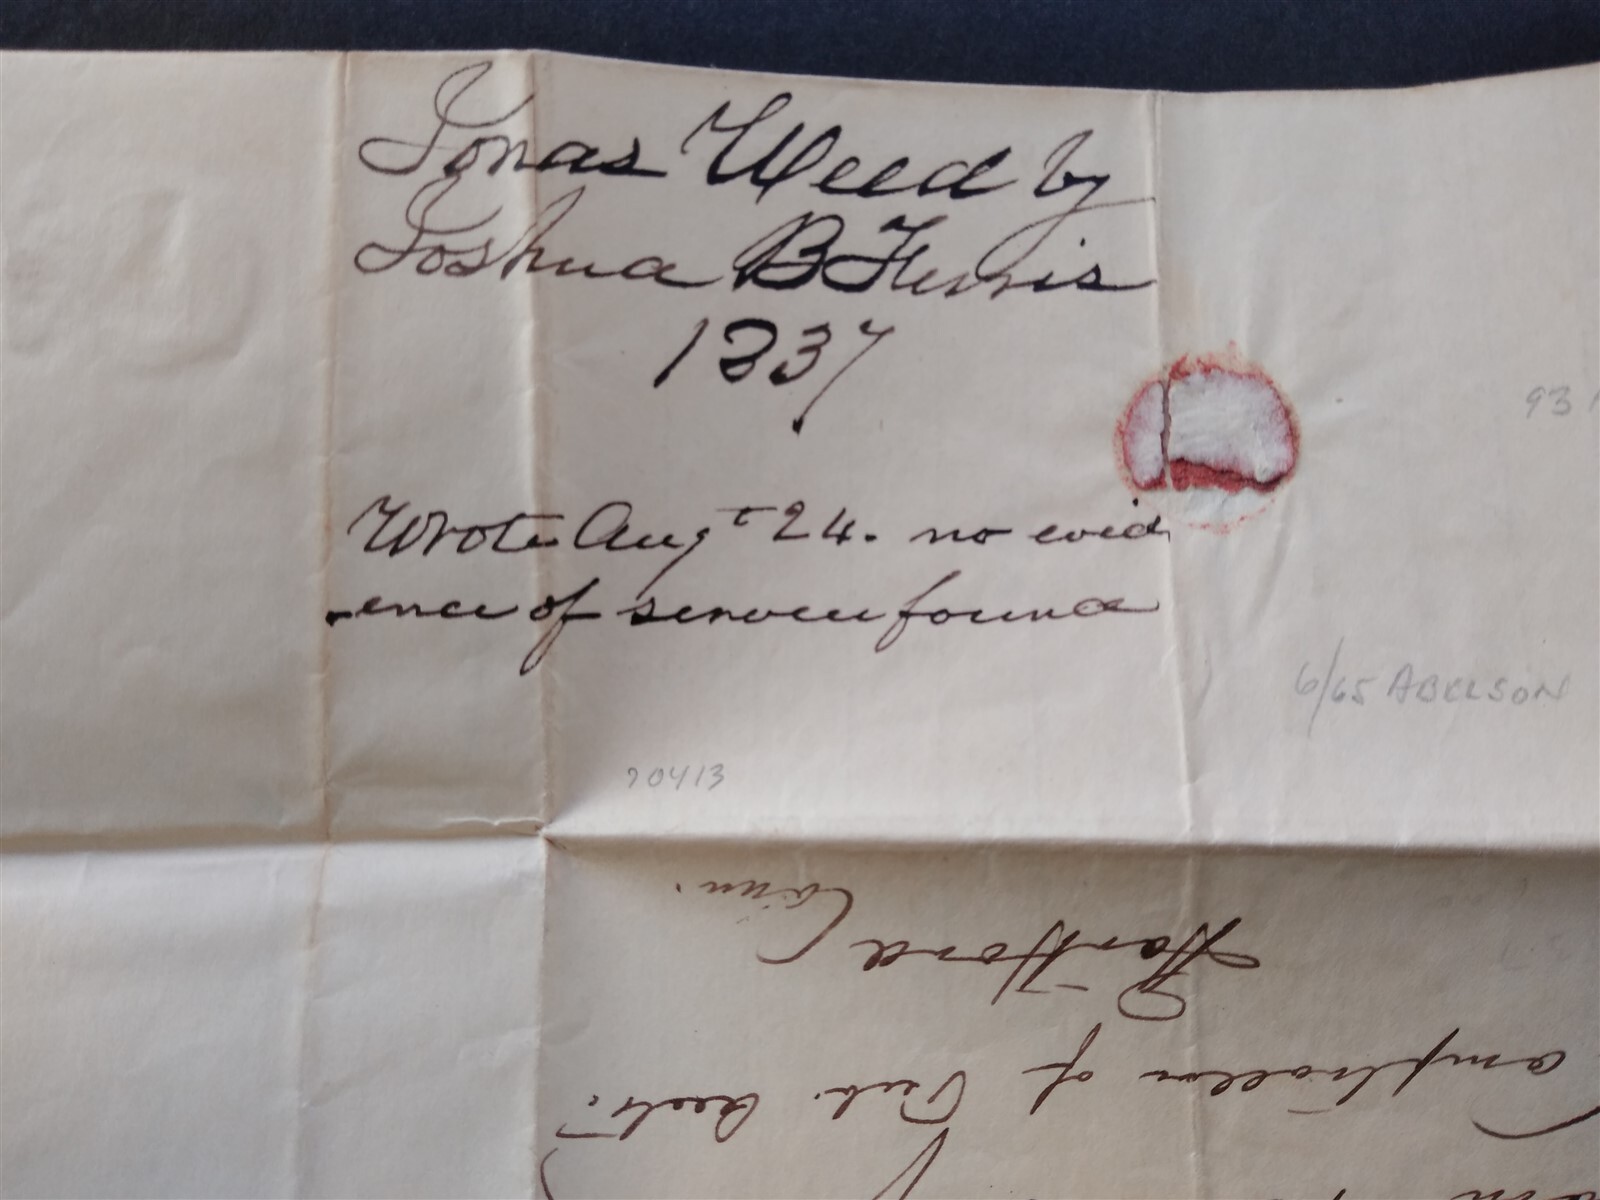 Jonas Weed by
Joshua B Ferris
1837
Wrote Augt 24. no evid
ence of service found
93
6/65 ABELSON
70413
Comptroller of Pub. Acct.
Hartford
Conn.